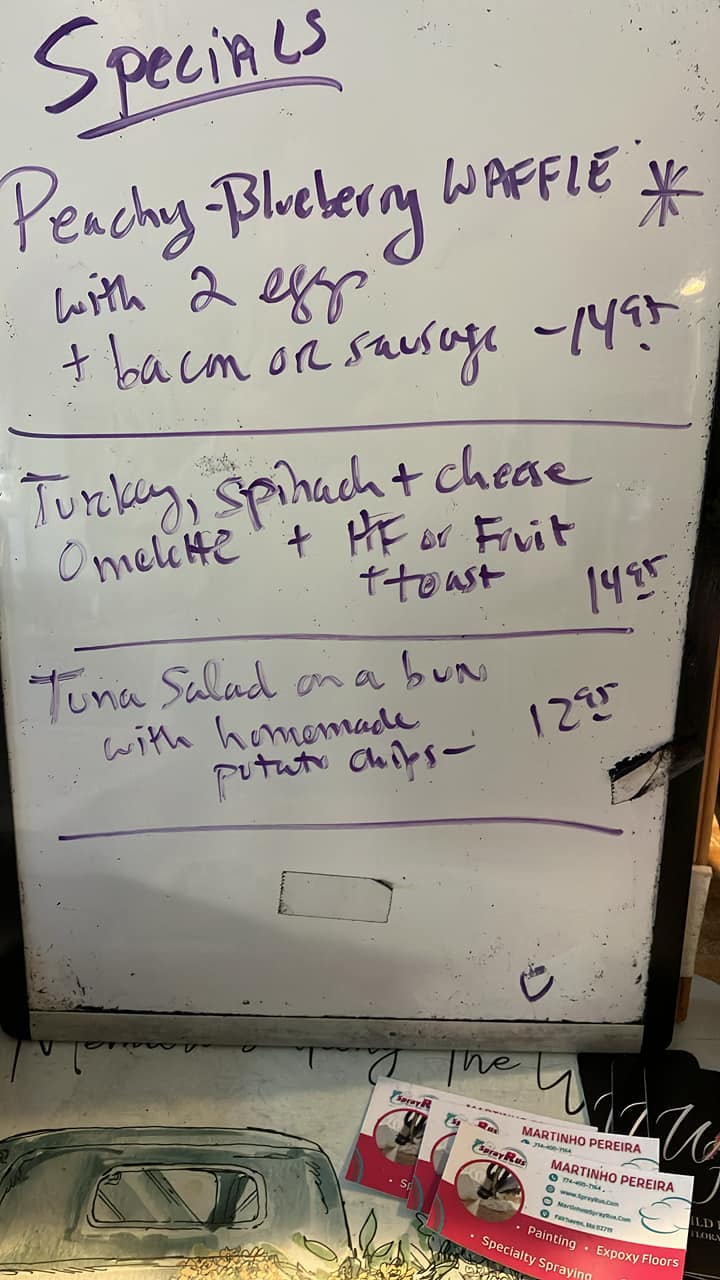 Specials
Peachy-Blueberry WAFFLE *
with 2 eggs
+ bacon OR sausage - 14.95
Turkey, spinach + cheese
Omelette + HF or Fruit
+ toast 14.95
Tuna Salad on a bun
with homemade 12.95
potato chips -
The
SprayRus
MARTINHO PEREIRA
774-400-7164
SprayRus
MARTINHO PEREIRA
774-400-7164
www.SprayRus.Com
Martinho@SprayRus.Com
Fairhaven, Ma 02719
• Painting • Expoxy Floors
• Specialty Spraying